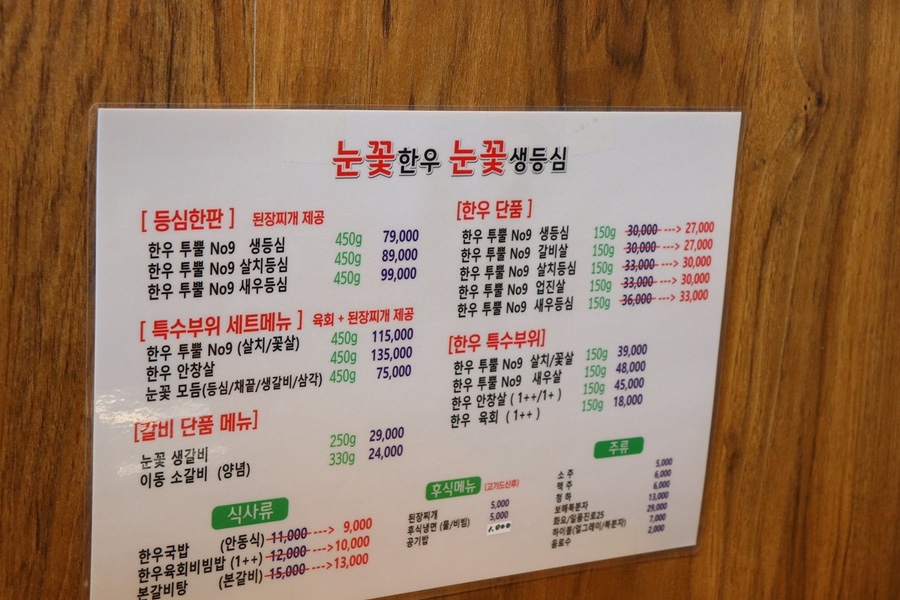 눈꽃한우 눈꽃생등심
[ 등심한판 ] 된장찌개 제공
한우 투뿔 No9 생등심 450g 79,000
한우 투뿔 No9 살치등심 450g 89,000
한우 투뿔 No9 새우등심 450g 99,000
[ 특수부위 세트메뉴 ] 육회 + 된장찌개 제공
한우 투뿔 No9 (살치/꽃살) 450g 115,000
한우 안창살 450g 135,000
눈꽃 모듬(등심/채끝/생갈비/삼각) 450g 75,000
[갈비 단품 메뉴]
눈꽃 생갈비 250g 29,000
이동 소갈비 (양념) 330g 24,000
식사류
한우국밥 (안동식) 11,000 ---> 9,000
한우육회비빔밥 (1++) 12,000 --->10,000
본갈비탕 (본갈비) 15,000 --->13,000
[한우 단품 ]
한우 투뿔 No9 생등심 150g 30,000 ---> 27,000
한우 투뿔 No9 갈비살 150g 30,000 ---> 27,000
한우 투뿔 No9 살치등심 150g 33,000 ---> 30,000
한우 투뿔 No9 업진살 150g 33,000 ---> 30,000
한우 투뿔 No9 새우등심 150g 36,000 ---> 33,000
[한우 특수부위]
한우 투뿔 No9 살치/꽃살 150g 39,000
한우 투뿔 No9 새우살 150g 48,000
한우 안창살 ( 1++/1+ ) 150g 45,000
한우 육회 ( 1++ ) 150g 18,000
후식메뉴 (고기드신후)
된장찌개 5,000
후식냉면 (물/비빔) 5,000
공기밥 1,000
주류
소 주 5,000
맥 주 6,000
청 하 6,000
보해복분자 13,000
화요/일품진로25 29,000
하이볼(얼그레이/복분자) 7,000
음료수 2,000